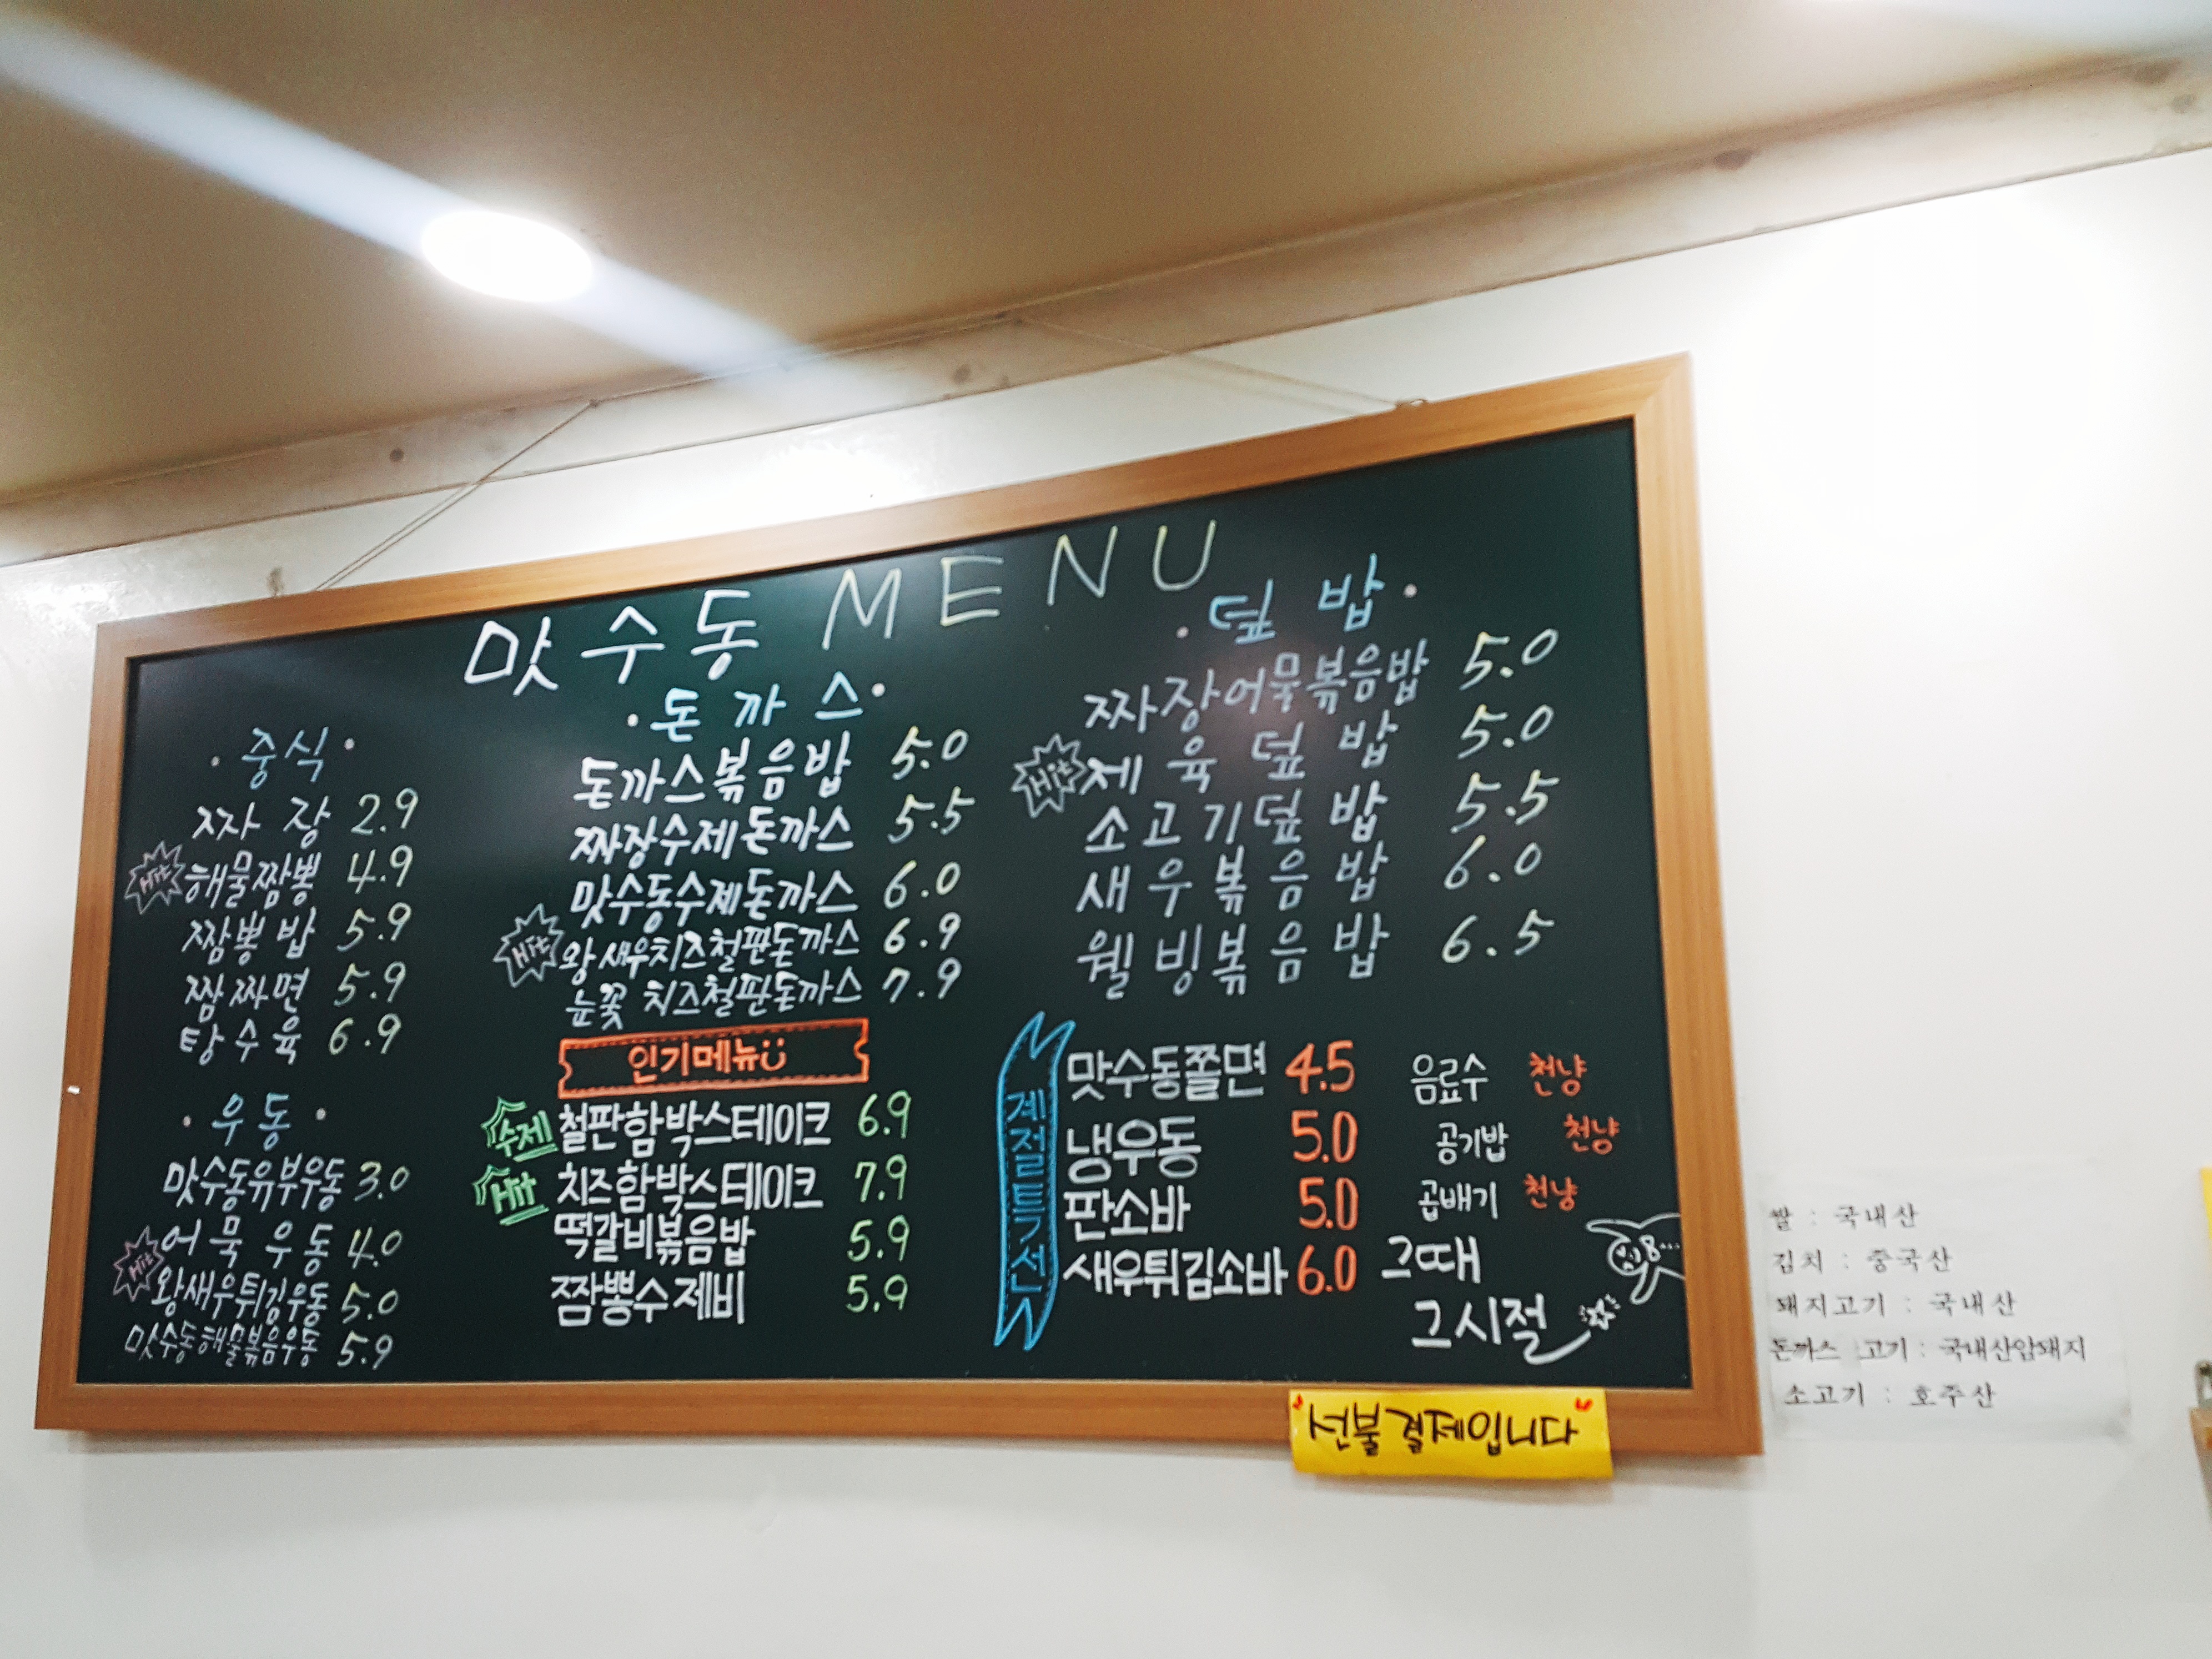 맛수동 MENU
·중식·
짜장 2.9
Hit 해물짬뽕 4.9
짬뽕밥 5.9
짬짜면 5.9
탕수육 6.9
·우동·
맛수동유부우동 3.0
어묵우동 4.0
Hit 왕새우튀김우동 5.0
맛수동해물볶음우동 5.9
·돈까스·
돈까스볶음밥 5.0
짜장수제돈까스 5.5
맛수동수제돈까스 6.0
Hit 왕새우치즈철판돈까스 6.9
눈꽃 치즈철판돈까스 7.9
인기메뉴
수제 철판함박스테이크 6.9
치즈함박스테이크 7.9
떡갈비볶음밥 5.9
짬뽕수제비 5.9
·덮밥·
짜장어묵볶음밥 5.0
Hit 제육덮밥 5.0
소고기덮밥 5.5
새우볶음밥 6.0
웰빙볶음밥 6.5
계절특선
맛수동쫄면 4.5
냉우동 5.0
판소바 5.0
새우튀김소바 6.0
음료수 천냥
공기밥 천냥
곱배기 천냥
그때
그시절
"선불결제입니다"
쌀 : 국내산
김치 : 중국산
돼지고기 : 국내산
돈까스 고기 : 국내산암돼지
소고기 : 호주산